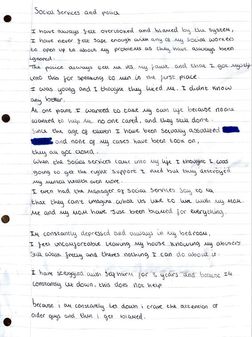 Social Services and police
I have always felt overlooked and blamed by the system,
I have never felt safe enough with any of my social workers
to open up to about my problems as they have always been
ignored.
The police always tell me its my fault, and that I got myself
into this for speaking to men in the first place
I was young and I thought they liked me. I didnt know
any better.
At one point I wanted to take my own life because noone
wanted to help me no one cared, and they still dont.
Since the age of eleven I have been sexually
and none of my cases have been took on,
they all got closed.
When the social services came into my life I thought I was
going to get the right support I need but they destroyed
my mental health even more.
I even had the manager of social services say to me
that they cant imagine what its like to live with my mum
Me and my mum have just been blamed for everything.
Im constantly depressed and always in my bedroom,
I feel uncomfortable leaving my house knowing my abusers
still walk freely and theres nothing I can do about it.
I have struggled with self harm for 3 years and because Im
constantly let down, this does not help
because i am constantly let down i crave the attention of
older guys and then i get blamed.